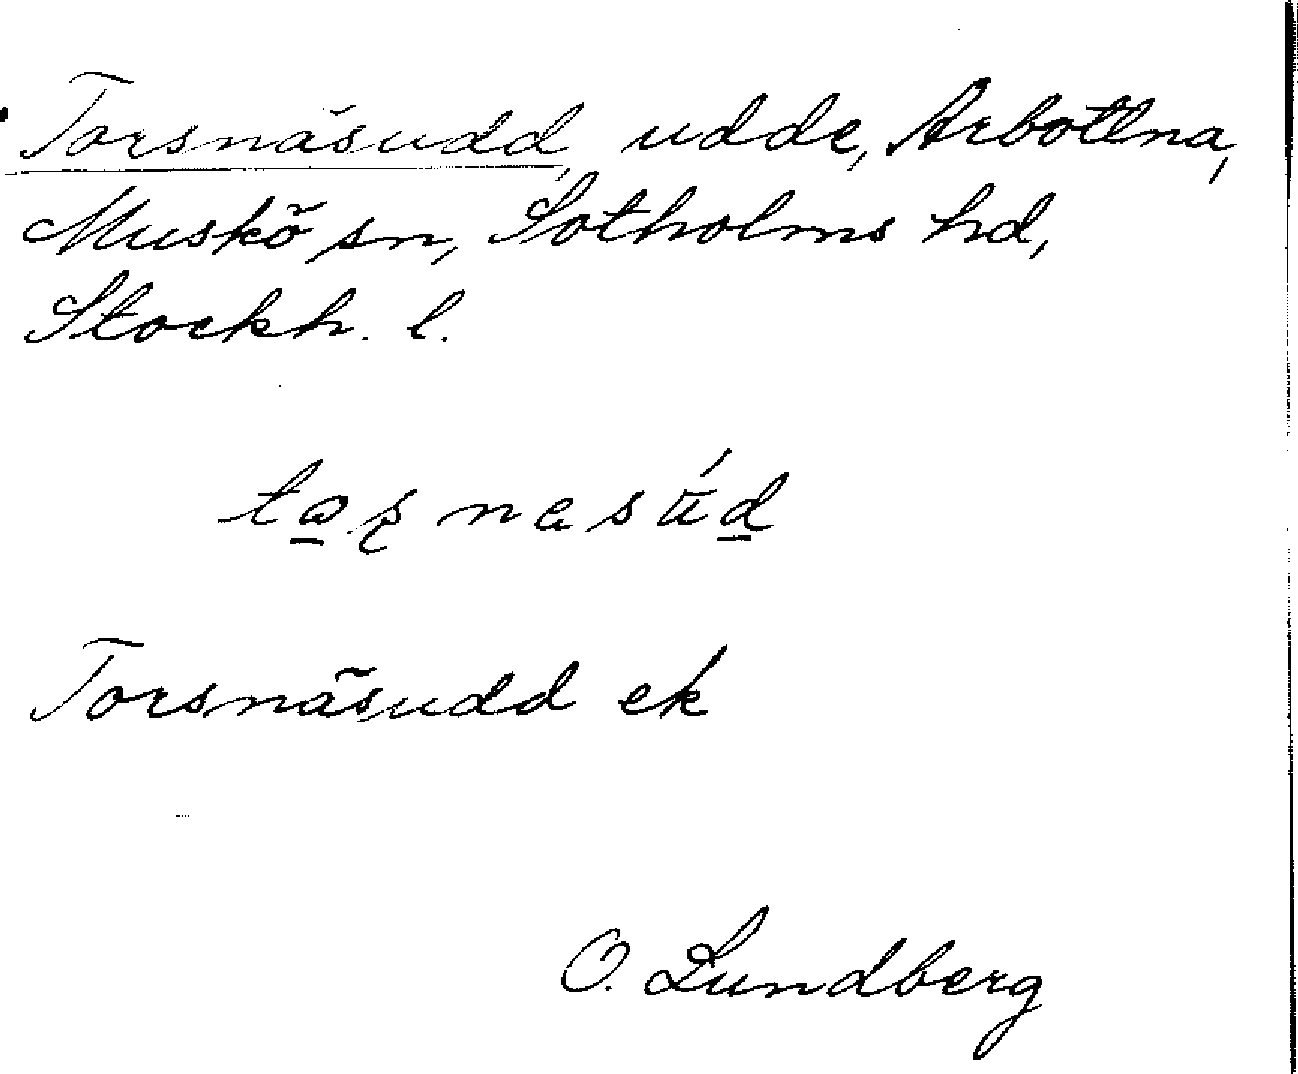 Torsnäsudd, udde, Arbottna,
Muskö sn, Sotholms hd,
Stockh. l.
Torsnäsudd ek
O. Lundberg